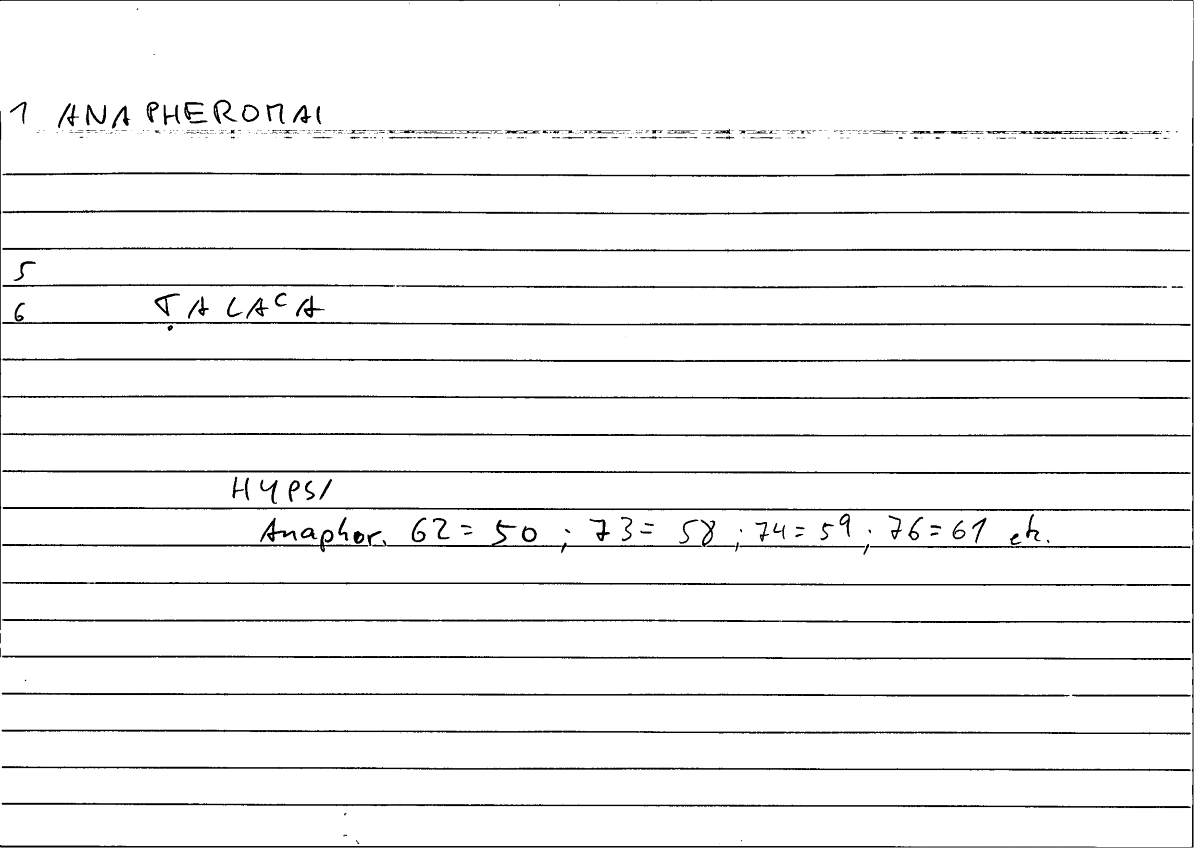 1 ANAPHEROMAI
5
6 ṬALACA
HYPS/
Anaphor. 62 = 50 ; 73 = 58 ; 74 = 59 ; 76 = 61 etc.